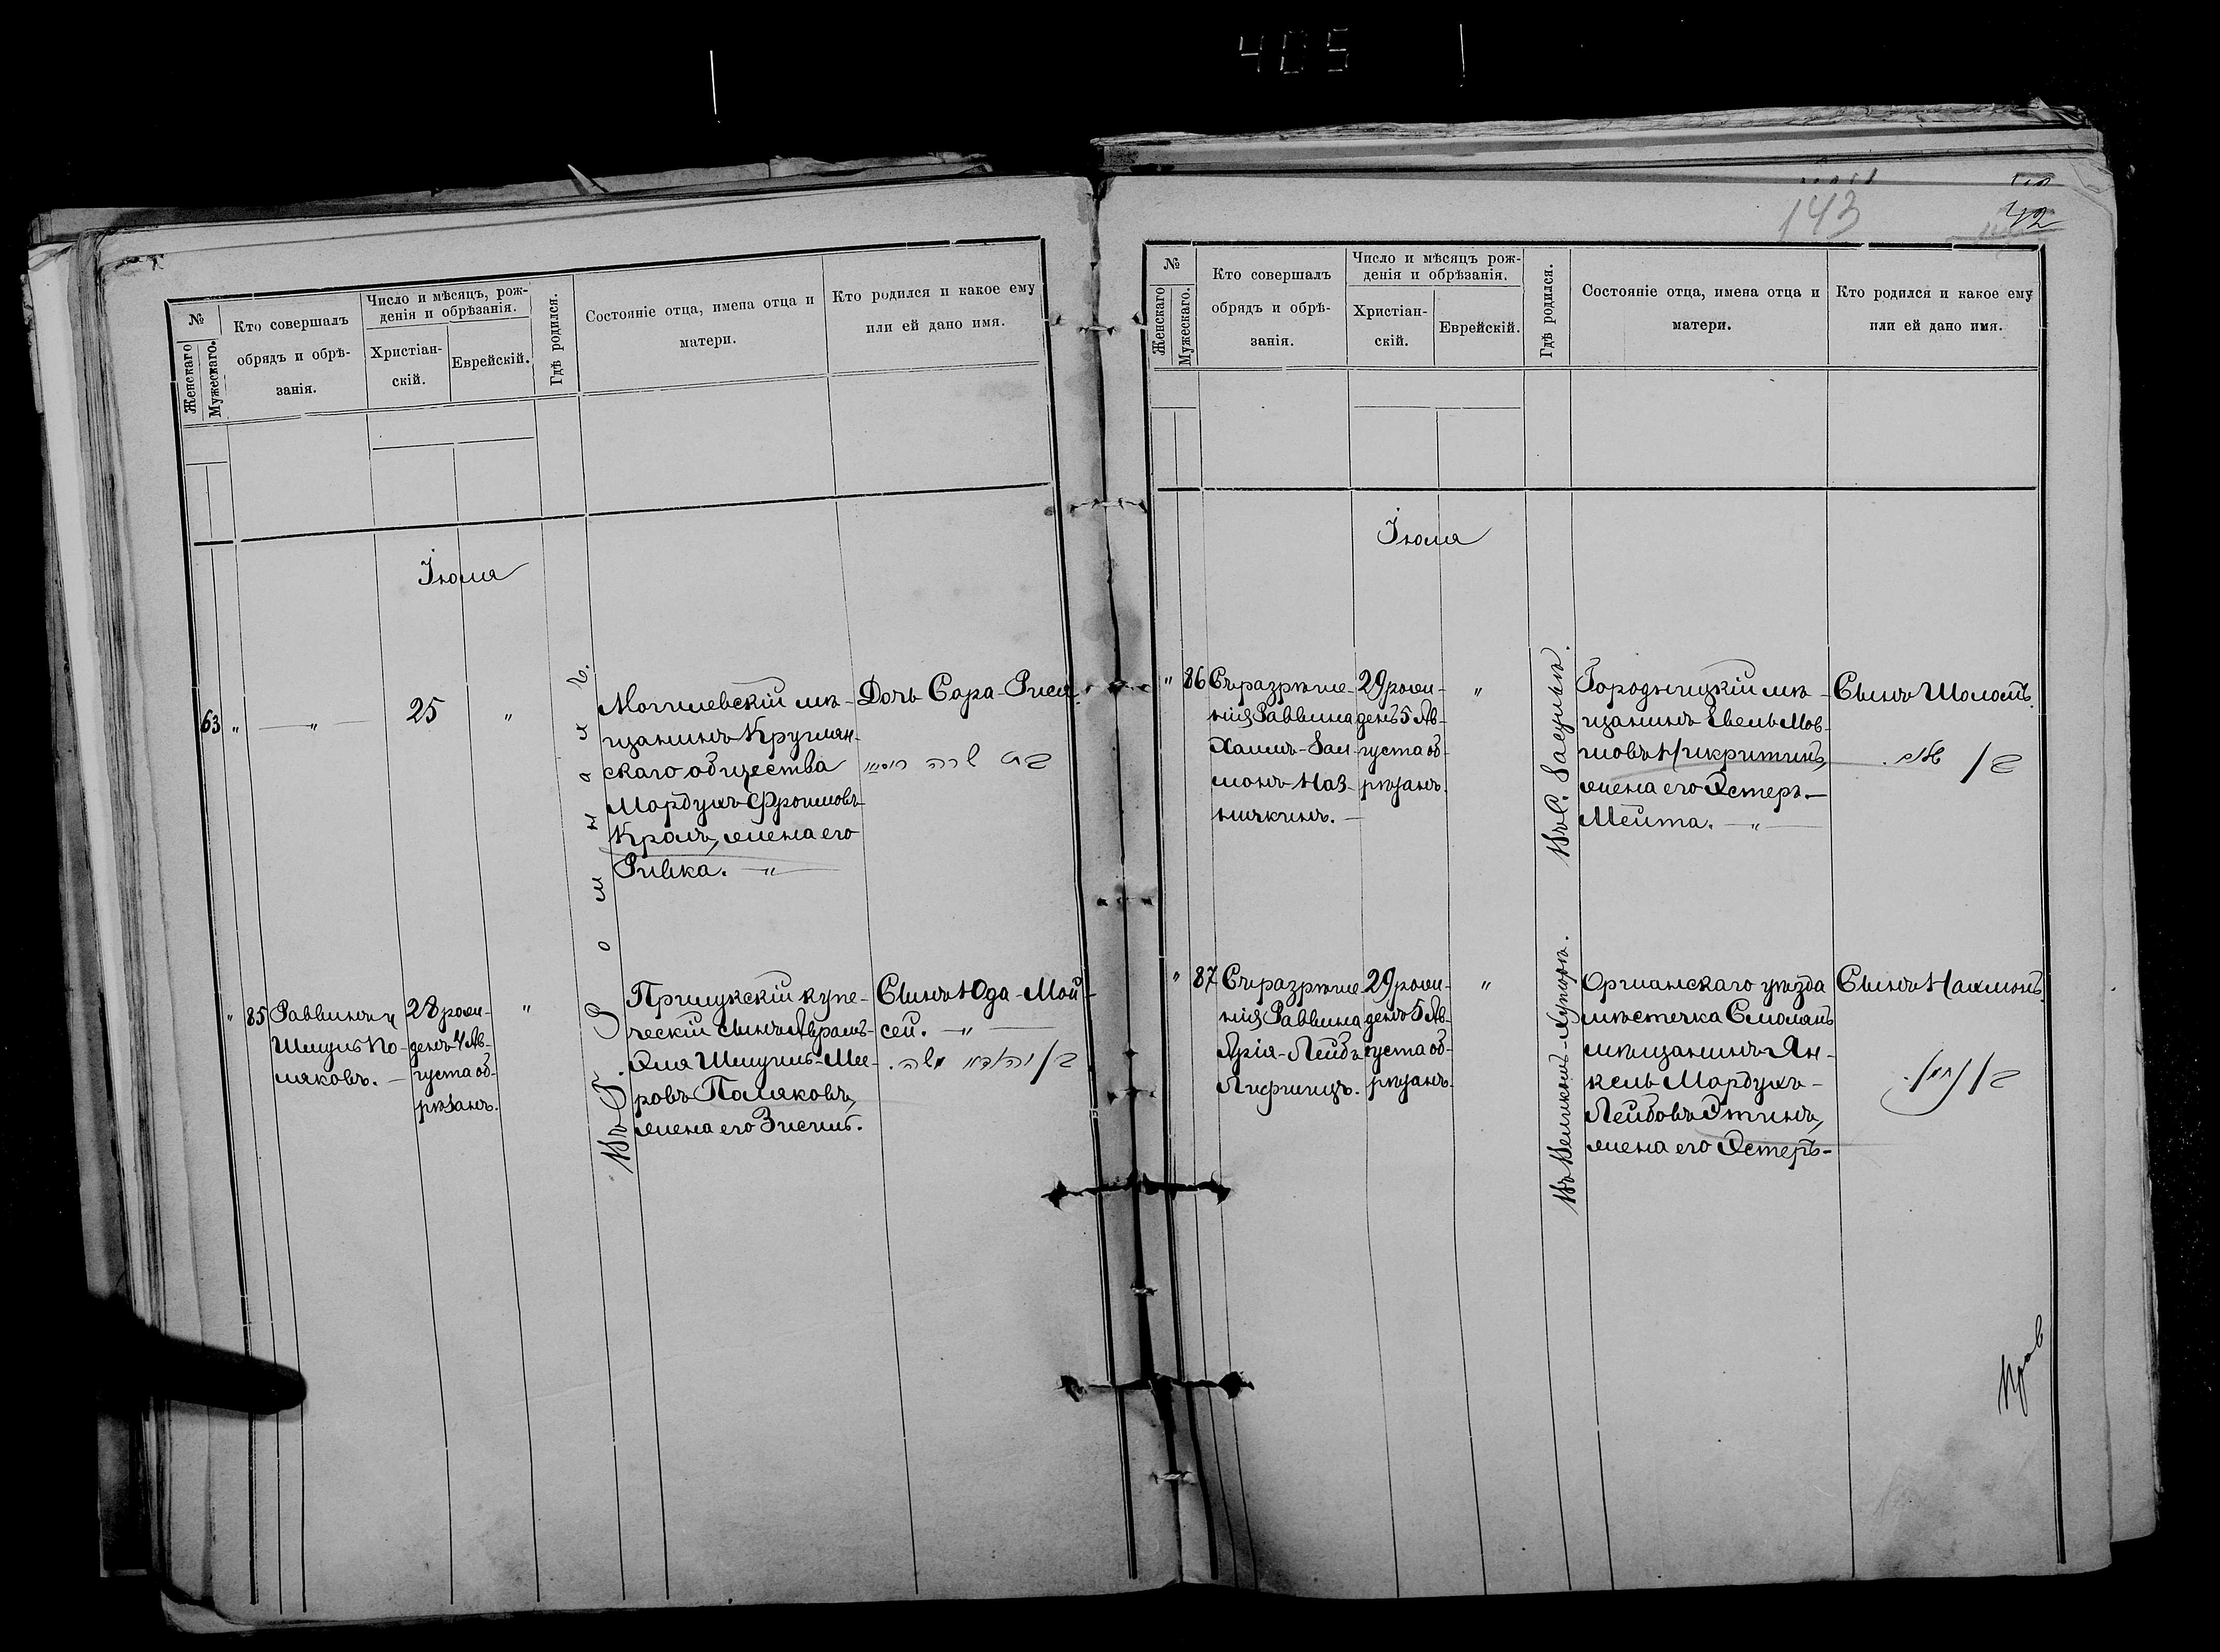 405
№
Женскаго
Мужескаго.
Кто совершалъ
обрядъ и обрѣ-
занія.
Число и мѣсяцъ, рож-
денія и обрѣзанія.
Христіан-
скій.
Еврейскій.
Гдѣ родился.
Состояніе отца, имена отца и
матери.
Кто родился и какое ему
или ей дано имя.
Іюля
63
"
"
25
"
Въ г. Ромнахъ.
Могилевскій мѣ-
щанинъ Круглян-
скаго общества
Мордухъ Фроимовъ
Кролъ, жена его
Ривка. — " —
Дочь Сара-Рися.
שרה
"
85
Раввинъ и
Шмуль По-
ляковъ. —
28 рож-
денъ 4 Ав-
густа об-
рѣзанъ.
"
Прилукскій купе-
ческій сынъ Абрамъ-
Эля Шмуиль-Мее-
ровъ Поляковъ,
жена его Зисель.
Сынъ Юда-Мой-
сей. — " —
משה
143
42
№
Женскаго
Мужескаго.
Кто совершалъ
обрядъ и обрѣ-
занія.
Число и мѣсяцъ рож-
денія и обрѣзанія.
Христіан-
скій.
Еврейскій.
Гдѣ родился.
Состояніе отца, имена отца и
матери.
Кто родился и какое ему
или ей дано имя.
Іюля
"
86
Съ разрѣше-
нія Раввина
Хаимъ-Зал-
монъ
29 рож-
денъ 5 Ав-
густа об-
рѣзанъ.
"
Въ С.
Городницкій мѣ-
щанинъ Евель Мов-
шовъ Никритинъ,
жена его Эстеръ-
Мейта. — " —
Сынъ Шоломъ.
בן
"
87
Съ разрѣше-
нія Раввина
Арія-Лейбъ
Лифшицъ.
29 рож-
денъ 5 Ав-
густа об-
рѣзанъ.
"
Въ Великомъ-Хуторѣ.
Оршанскаго уѣзда
мѣстечка Смолянъ
мѣщанинъ Ян-
кель Мордухъ-
Лейбовъ Этинъ,
жена его Эстеръ-
Сынъ Нахманъ
בן נחמן.